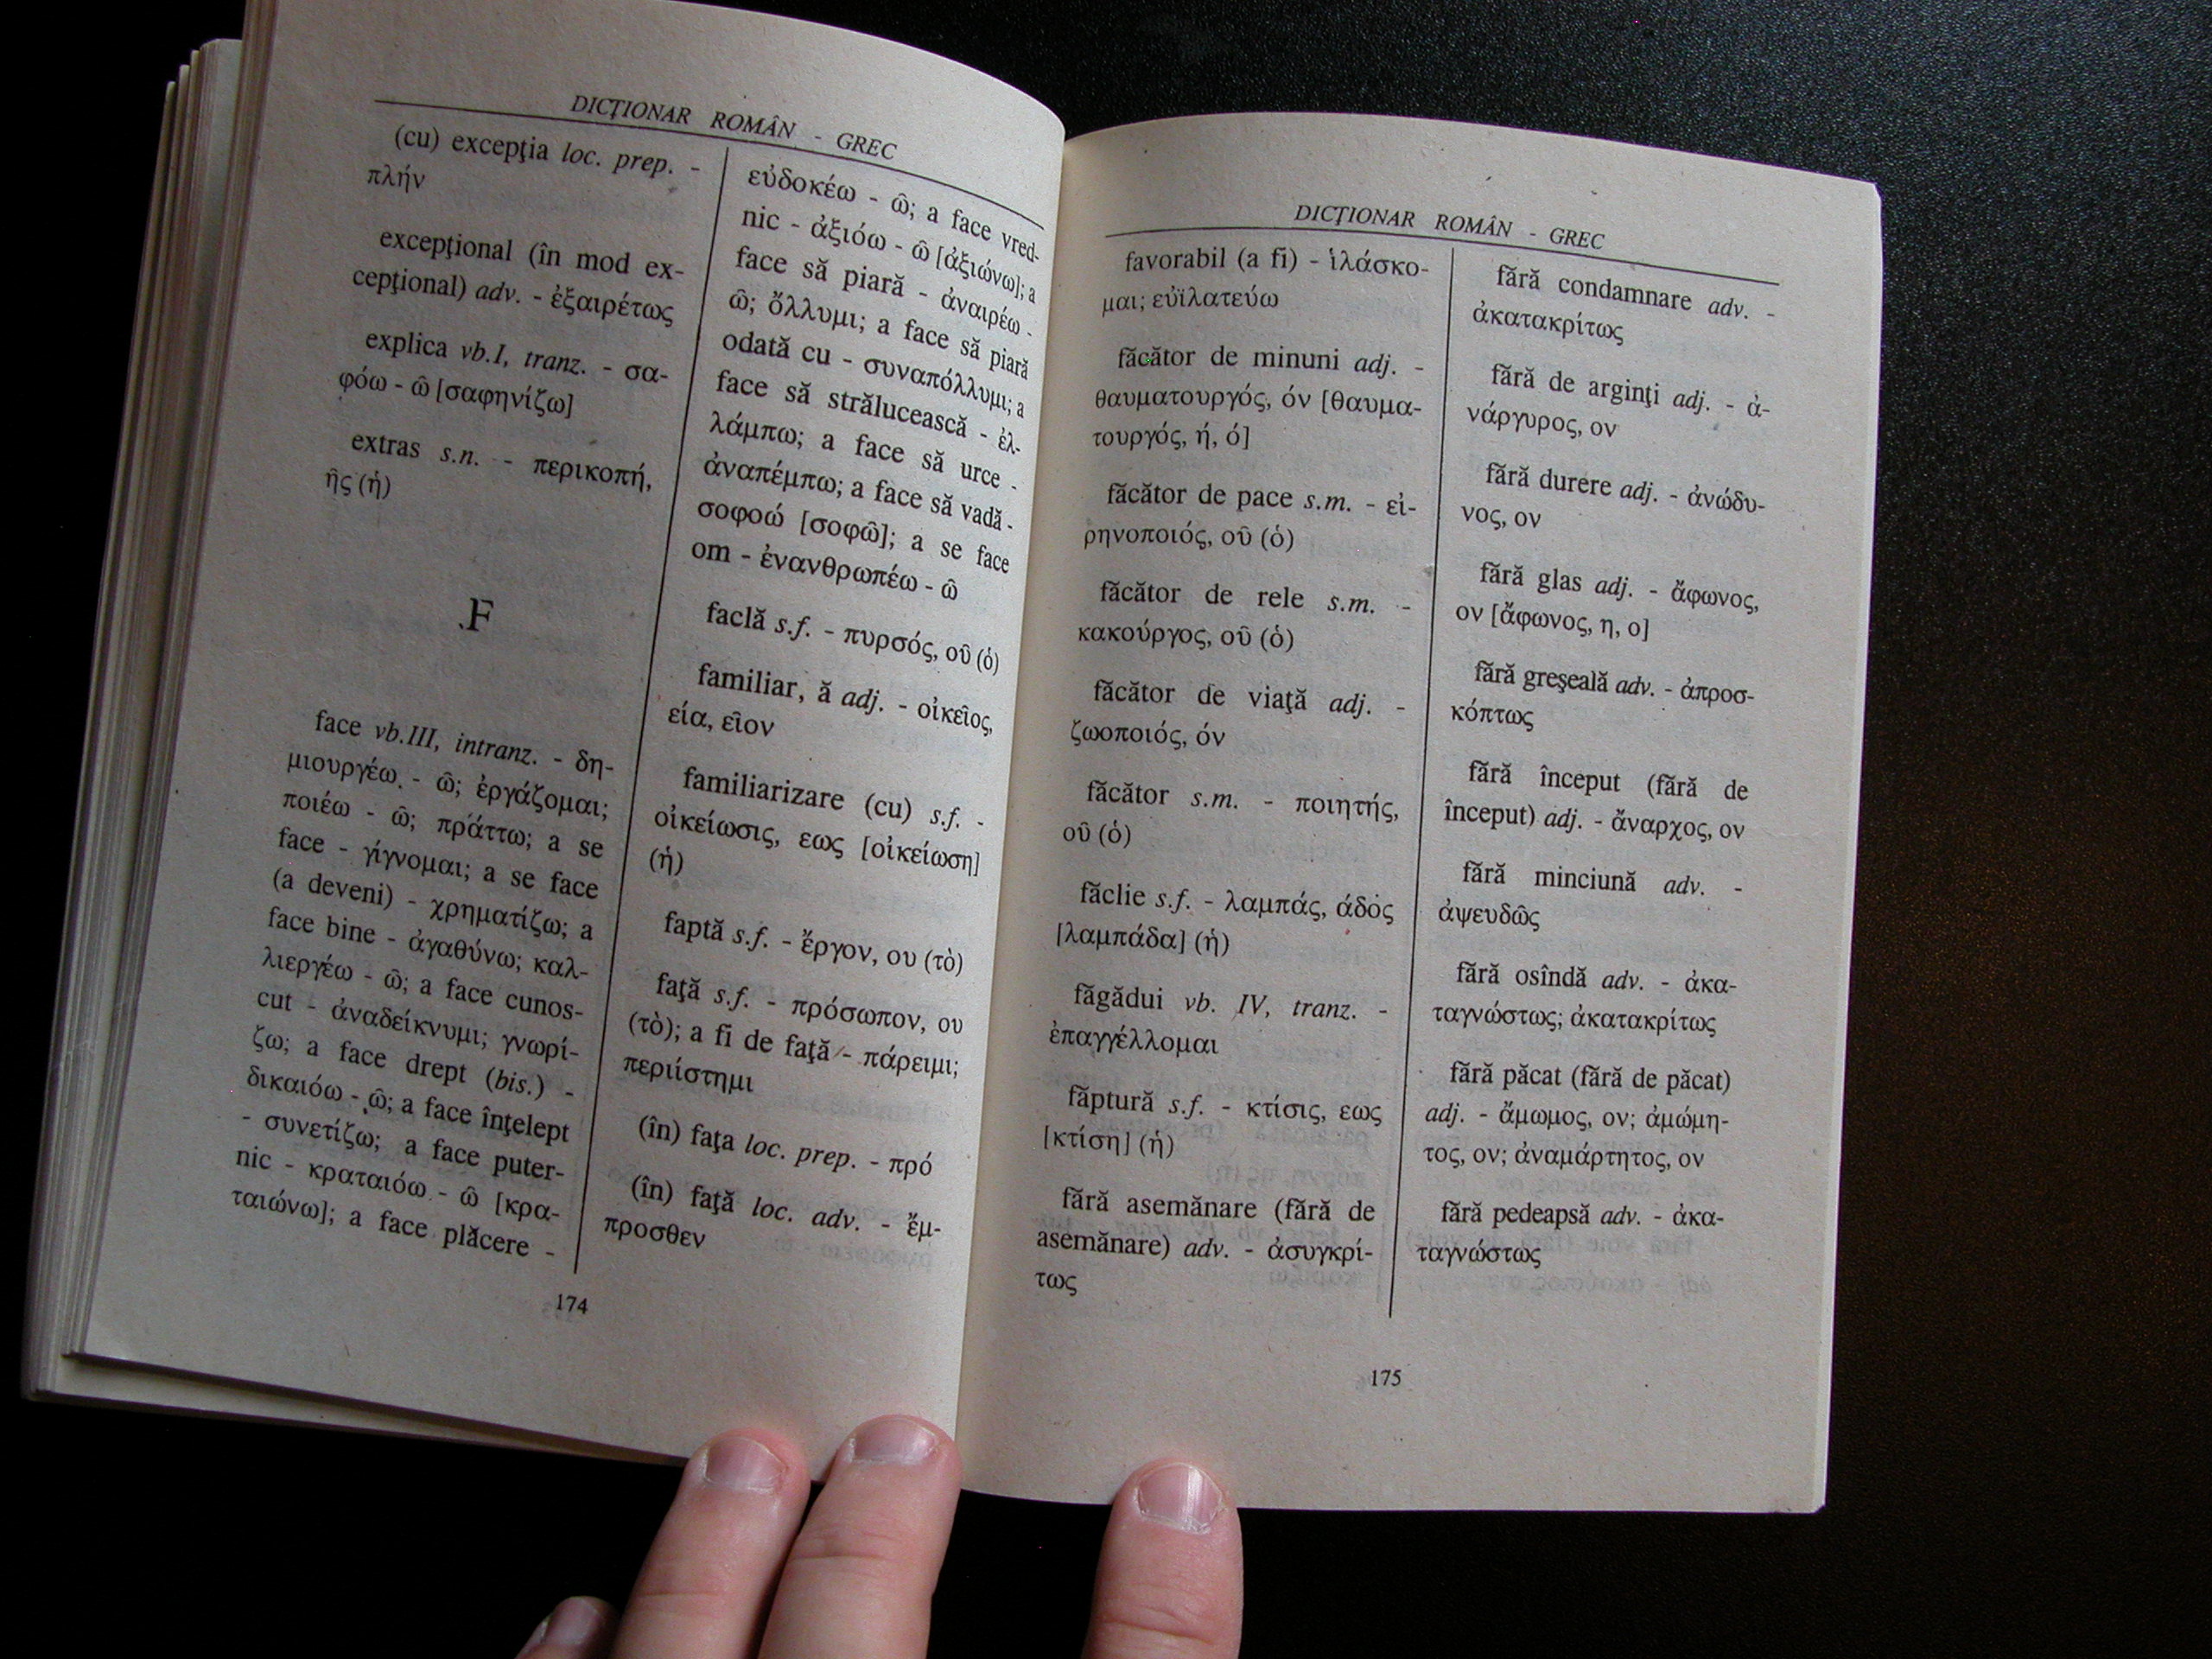 DICŢIONAR ROMÂN - GREC
(cu) excepţia loc. prep. -
πλήν
excepţional (în mod ex-
cepţional) adv. - ἐξαιρέτως
explica vb.I, tranz. - σα-
φόω - ῶ [σαφηνίζω]
extras s.n. - περικοπή,
ῆς (ἡ)
F
face vb.III, intranz. - δη-
μιουργέω - ῶ; ἐργάζομαι;
ποιέω - ῶ; πράττω; a se
face - γίγνομαι; a se face
(a deveni) - χρηματίζω; a
face bine - ἀγαθύνω; καλ-
λιεργέω - ῶ; a face cunos-
cut - ἀναδείκνυμι; γνωρί-
ζω; a face drept (bis.) -
δικαιόω - ῶ; a face înţelept
- συνετίζω; a face puter-
nic - κραταιόω - ῶ [κρα-
ταιώνω]; a face plăcere -
εὐδοκέω - ῶ; a face vred-
nic - ἀξιόω - ῶ [ἀξιώνω]; a
face să piară - ἀναιρέω -
ῶ; ὄλλυμι; a face să piară
odată cu - συναπόλλυμι; a
face să strălucească - ἐλ-
λάμπω; a face să urce -
ἀναπέμπω; a face să vadă -
σοφοώ [σοφῶ]; a se face
om - ἐνανθρωπέω - ῶ
faclă s.f. - πυρσός, οῦ (ὁ)
familiar, ă adj. - οἰκεῖος,
εία, εῖον
familiarizare (cu) s.f. -
οἰκείωσις, εως [οἰκείωση]
(ἡ)
faptă s.f. - ἔργον, ου (τὸ)
faţă s.f. - πρόσωπον, ου
(τὸ); a fi de faţă - πάρειμι;
περιίστημι
(în) faţa loc. prep. - πρό
(în) faţă loc. adv. - ἔμ-
προσθεν
174
DICŢIONAR ROMÂN - GREC
favorabil (a fi) - ἱλάσκο-
μαι; εὐϊλατεύω
făcător de minuni adj. -
θαυματουργός, όν [θαυμα-
τουργός, ή, ό]
făcător de pace s.m. - εἰ-
ρηνοποιός, οῦ (ὁ)
făcător de rele s.m. -
κακούργος, οῦ (ὁ)
făcător de viaţă adj. -
ζωοποιός, όν
făcător s.m. - ποιητής,
οῦ (ὁ)
făclie s.f. - λαμπάς, άδος
[λαμπάδα] (ἡ)
făgădui vb. IV, tranz. -
ἐπαγγέλλομαι
făptură s.f. - κτίσις, εως
[κτίση] (ἡ)
fără asemănare (fără de
asemănare) adv. - ἀσυγκρί-
τως
fără condamnare adv. -
ἀκατακρίτως
fără de arginţi adj. - ἀ-
νάργυρος, ον
fără durere adj. - ἀνώδυ-
νος, ον
fără glas adj. - ἄφωνος,
ον [ἄφωνος, η, ο]
fără greşeală adv. - ἀπροσ-
κόπτως
fără început (fără de
început) adj. - ἄναρχος, ον
fără minciună adv. -
ἀψευδῶς
fără osîndă adv. - ἀκα-
ταγνώστως; ἀκατακρίτως
fără păcat (fără de păcat)
adj. - ἄμωμος, ον; ἀμώμη-
τος, ον; ἀναμάρτητος, ον
fără pedeapsă adv. - ἀκα-
ταγνώστως
175